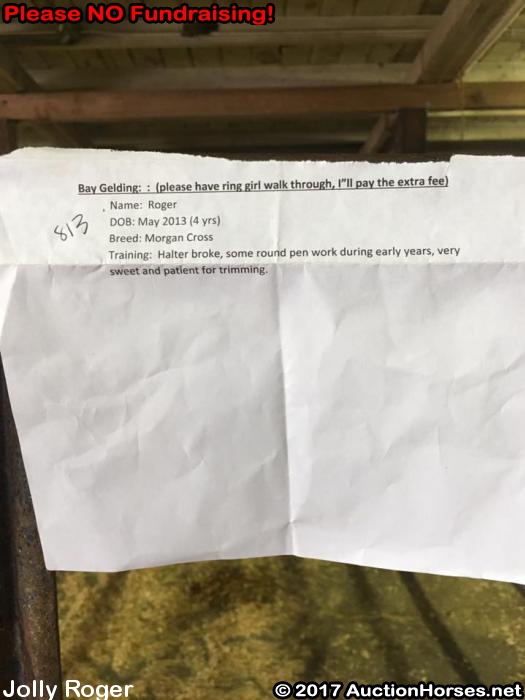 Please NO Fundraising!
Bay Gelding: : (please have ring girl walk through, I"ll pay the extra fee)
813
Name: Roger
DOB: May 2013 (4 yrs)
Breed: Morgan Cross
Training: Halter broke, some round pen work during early years, very
sweet and patient for trimming.
Jolly Roger
© 2017 AuctionHorses.net